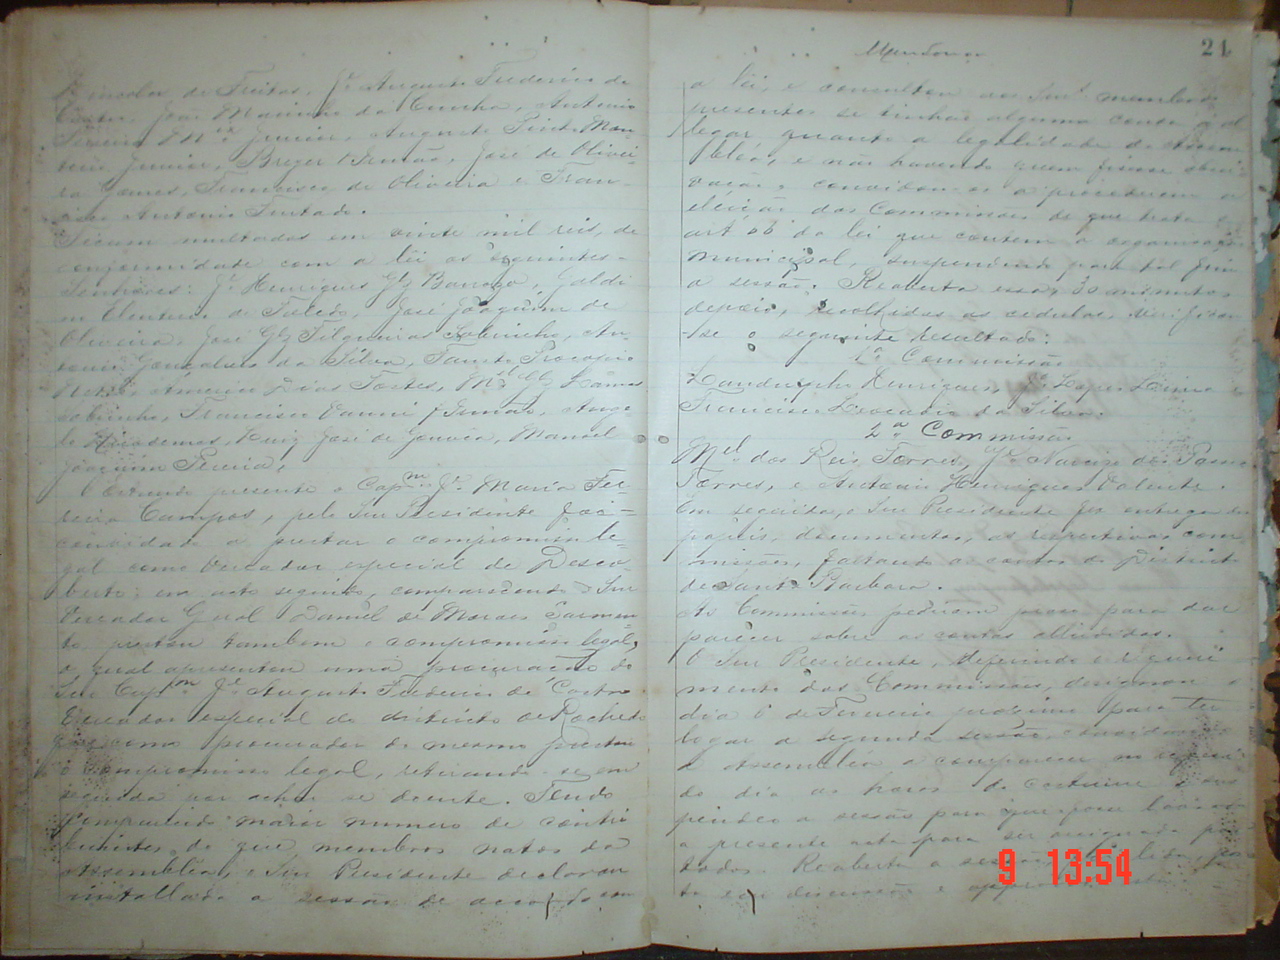 de Freitas, Jé Augusto Frederico de
Castro, João Marinho da Cunha, Antonio
Pereira Mª Junior, Augusto Pinto Mon-
teiro Junior, Breyer & Irmão, José de Olivei-
ra Gomes, Francisco de Oliveira e Fran-
cisco Antonio Furtado.
Ficam multados em vinte mil reis, de
conformidade com a lei os seguintes
Senhores: Jé Henriques Glz Barroso, Galdi
no de Toledo, José Joaquim de
Oliveira, José Glz Filgueiras Sobrinho, An-
tonio Gonçalves da Silva, Fausto Procopio
Dias Fortes, Mel Glz Lamas
Sobrinho, Francisco Vanni & Irmão, Ange-
lo, Luiz José de Gouvêa, Manoel
Joaquim Pereira,
Estando presente o Capm Jé Maria Fer-
reira Campos, pelo Snr Presidente foi
convidado a prestar o compromisso le-
gal como Vereador especial de Desco-
berto: em acto seguido, comparecendo o Snr
Vereador Geral Daniel de Moraes Sarmen-
to, prestou tambem o compromisso legal,
o qual apresentou uma procuração do
Snr Capm Jé Augusto Frederico de Castro
Vereador especial do districto de Rochedo
que como procurador do mesmo prestou
o compromisso legal, retirando-se em
seguida por achar-se doente. Tendo
comparecido maior numero de contri
buintes, do que membros natos da
Assembléa, o Snr Presidente declarou
installada a sessão de accordo com
21
a lei, e consultou aos Snrs membros
presentes se tinhão alguma cousa a al
legar quanto a legalidade da Assem
bléa, e não havendo quem fizesse obser-
vação, convidou-os a procederem a
eleição das Commissões de que trata o
art 66 da lei que contem a organisação
municipal, suspendendo para tal fim
a sessão. Reaberta essa, 30 minutos
depois, recolhidas as cedulas, verificou
-se o seguinte resultado:
1ª Commissão
Landulpho Henriques, Jé Lopes Lima e
Francisco Leocadio da Silva.
2ª Commissão
Mel dos Reis Torres, Jé Narciso dos Passos
Torres, e Antonio Henriques Valente.
Em seguida, o Snr Presidente fez entrega dos
papeis, documentos, as respectivas com
missões, faltando as contas do Districto
de Santa Barbara.
As Commissões pediram praso para dar
parecer sobre as contas alludidas.
O Snr Presidente, deferindo o requeri
mento das Commissões, designou o
dia 6 de Fevereiro proximo para ter
logar a segunda sessão, convidando
a Assembléa a comparecer no referi-
do dia as horas do costume e sus
pendeo a sessão para que fosse lavrada
a presente acta para ser assignada por
todos. Reaberta a sessão, lida, pos
ta em discussão e approvada
9 13:54